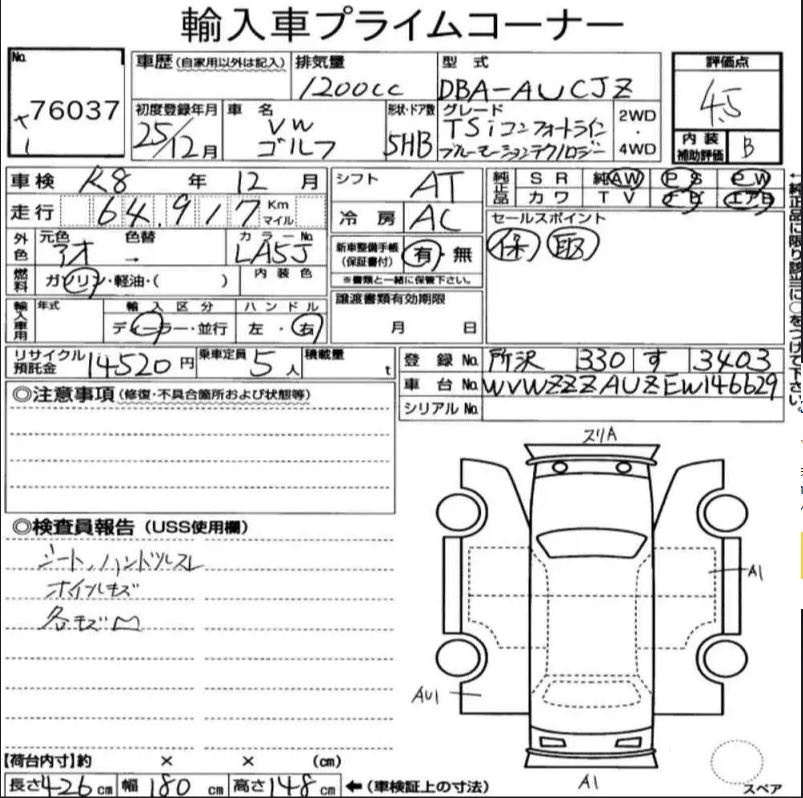 輸入車プライムコーナー
No.
76037
車歴(自家用以外は記入)
排気量
1200cc
型式
DBA-AUCJZ
評価点
4.5
初度登録年月
25/12月
車名
VW
ゴルフ
形状・ドア数
5HB
グレード
TSiコンフォートライン
ブルーモーションテクノロジー
2WD
・
4WD
内装
補助評価
B
車検 R8年12月
走行 64,917 Km
マイル
シフト AT
冷房 AC
純正品
SR 純AW PS PW
カワ TV ナビ エアB
セールスポイント
保 取
外色
元色 色替
アオ →
カラーNo.
LA5J
燃料
ガソリン・軽油・( )
内装色
新車整備手帳
(保証書付)
有・無
※書類と一緒に保管下さい。
輸入車用
年式
輸入区分
ディーラー・並行
ハンドル
左・右
譲渡書類有効期限
月 日
←純正品に限り該当に○をつけて下さい。
リサイクル
預託金
14520円
乗車定員 5人
積載量 t
登録No. 所沢 330 す 3403
車台No. WVWZZZAUZEW146629
シリアルNo.
◎注意事項(修復・不具合箇所および状態等)
◎検査員報告(USS使用欄)
シート、ハンドルスレ
ホイルキズ
各キズ凹
スリA
A1
AU1
A1
スペア
【荷台内寸】約 × × (cm)
長さ426cm 幅180cm 高さ148cm ←(車検証上の寸法)